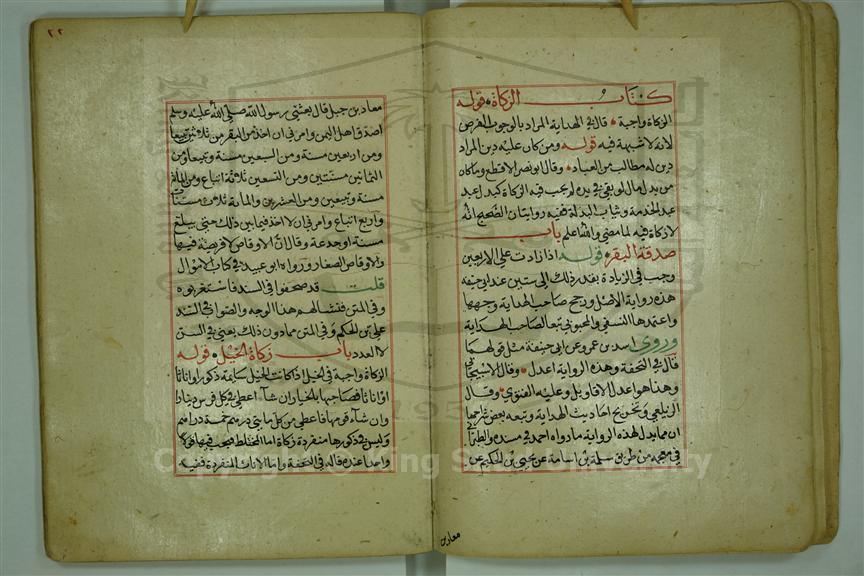 كتاب الزكاة قوله
الزكاة واجبة قال في الهداية المراد بالوجوب الفرض
لانه لا شبهة فيه قوله ومن كان عليه دين المراد
دين له مطالب من العباد وقال ابو نصر الاقطع وما كان
من بدل مال لو بقي في يده لم يجب فيه الزكاة كبدل عبد
عبد الخدمة وثياب البذلة ففيه روايتان الصحيح انه
لا زكاة فيه لما مضى والله اعلم باب
صدقة البقر قوله اذا زادت على الاربعين
وجب في الزيادة بقدر ذلك الى ستين عند ابي حنيفة
هذه رواية الاصل ورجح صاحب الهداية وجهها
واعتمدها النسفي والمحبوبي تبعا لصاحب الهداية
وروى اسد بن عمرو عن ابي حنيفة مثل قولهما
قال في التحفة وهذه الرواية اعدل وقال الاسبيجابي
وهذا هو اعدل الاقاويل وعليه الفتوى وقال
الزيلعي في تخريج احاديث الهداية وتبعه بعض شراحها
ان مما يدل لهذه الرواية ما رواه احمد في مسنده والطبراني
في معجمه من طريق سلمة بن اسامة عن يحيى بن الحكم عن
معاذ بن
٢٢
معاذ بن جبل قال بعثني رسول الله صلى الله عليه وسلم
اصدق اهل اليمن وامرني ان اخذ من البقر من ثلاثين تبيعا
ومن اربعين مسنة ومن السبعين مسنة وتبيعا ومن
الثمانين مسنتين ومن التسعين ثلاثة اتباع ومن المائة
مسنة وتبيعين ومن العشرين والمائة ثلاث مسنات
واربع اتباع وامرني ان لا اخذ فيما بين ذلك حتى يبلغ
مسنة او جدعة وقال ان الاوقاص لا فريضة فيها
والاوقاص الصغار ورواه ابو عبيد في كتاب الاموال
قلت قد صحفوا في السند فاستغربوه
وفي المتن فتشالهم هذا الوجه والصواب في السند
على بن الحكم وفي المتن مما دون ذلك يعني في السن
لا العدد باب زكاة الخيل قوله
الزكاة واجبة في الخيل اذا كانت الخيل سايمة ذكورا واناثا
او اناثا فصاحبها بالخيار ان شاء اعطى في كل فرس دينارا
وان شاء قومها فاعطى من كل مايتي درهم خمسة دراهم
وليس في ذكورها منفردة زكاة اما المختلط فيجب فيها قولا
واحدا عنده قاله في التحفة واما الاناث المنفردة ففيه